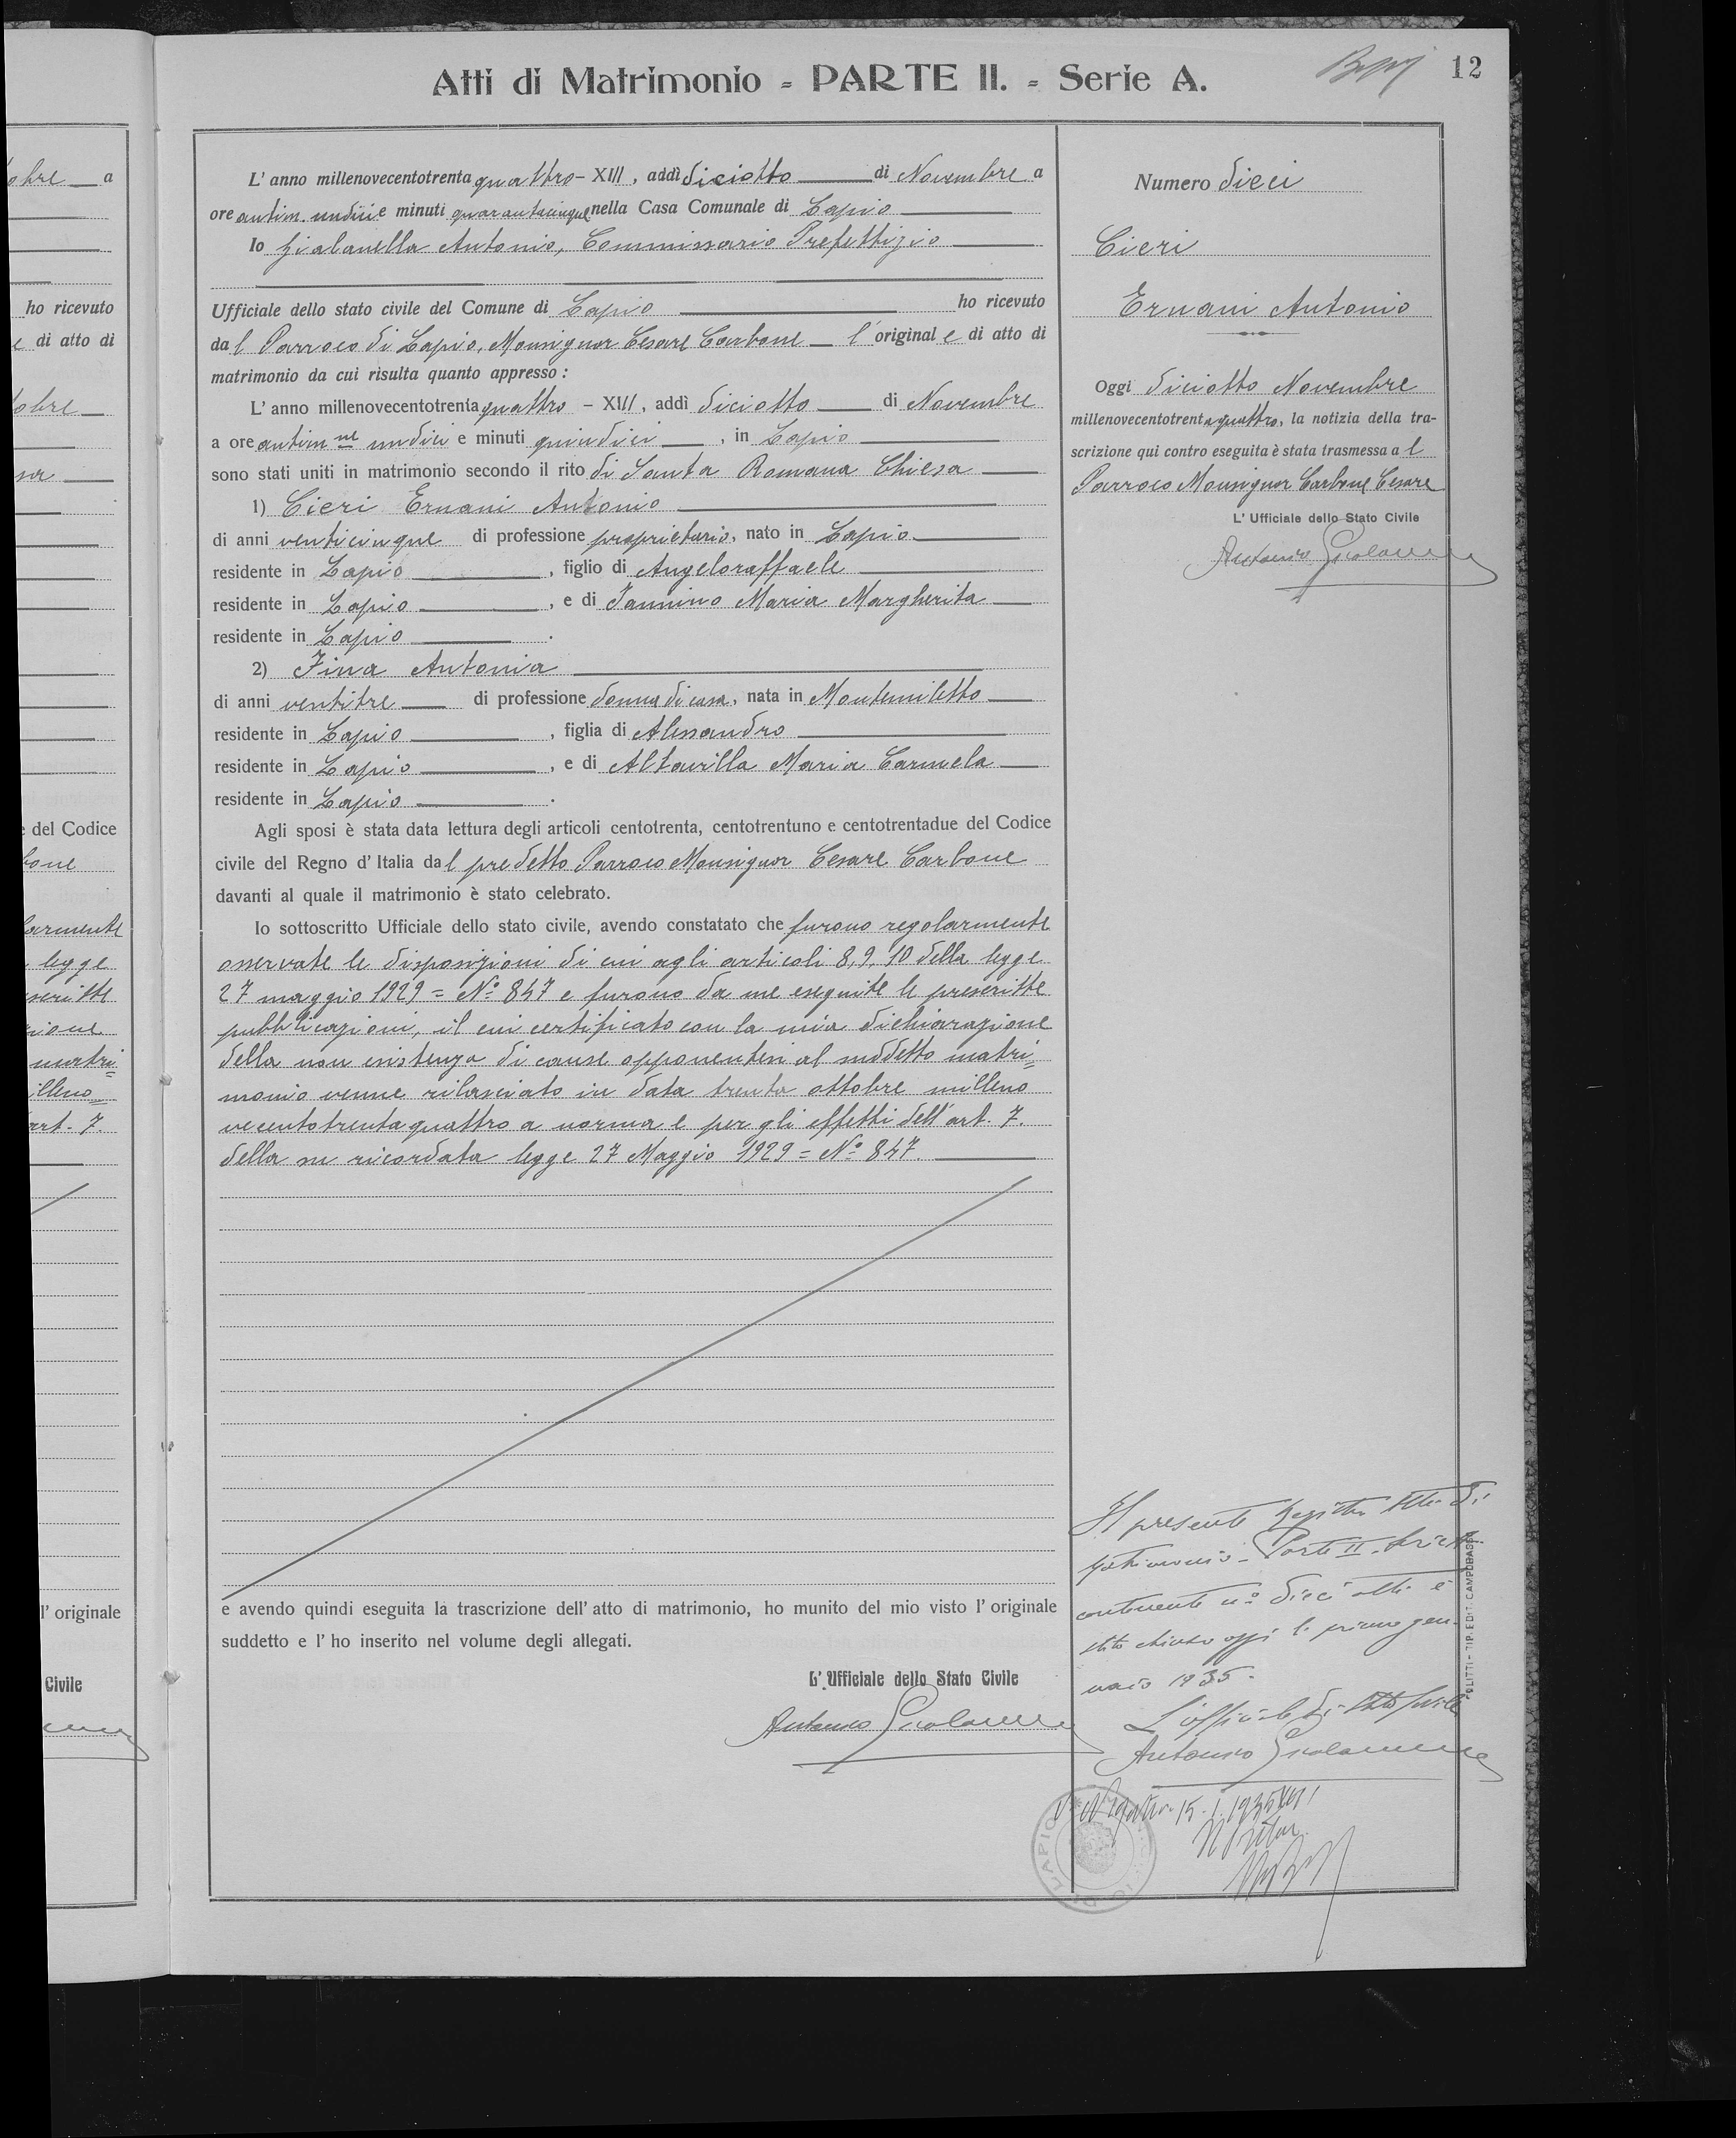 Atti di Matrimonio - PARTE II. - Serie A.
12
L' anno millenovecentotrenta quattro - XIII, addì diciotto di Novembre a
ore antim. undici e minuti quarantacinque nella Casa Comunale di Lapio
Io Gialanella Antonio, Commissario Prefettizio
Ufficiale dello stato civile del Comune di Lapio ho ricevuto
dal Parroco di Lapio, Monsignor Cesare Carbone l'originale di atto di
matrimonio da cui risulta quanto appresso :
L' anno millenovecentotrenta quattro - XIII, addì diciotto di Novembre
a ore antim ne undici e minuti quindici, in Lapio
sono stati uniti in matrimonio secondo il rito di Santa Romana Chiesa
1) Cieri Ernani Antonio
di anni venticinque di professione proprietario, nato in Lapio
residente in Lapio, figlio di Angeloraffaele
residente in Lapio, e di Iannino Maria Margherita
residente in Lapio.
2) Fina Antonia
di anni ventitre di professione donna di casa, nata in Montemiletto
residente in Lapio, figlia di Alessandro
residente in Lapio, e di Altavilla Maria Carmela
residente in Lapio.
Agli sposi è stata data lettura degli articoli centotrenta, centotrentuno e centotrentadue del Codice
civile del Regno d' Italia dal predetto Parroco Monsignor Cesare Carbone
davanti al quale il matrimonio è stato celebrato.
Io sottoscritto Ufficiale dello stato civile, avendo constatato che furono regolarmente
osservate le disposizioni di cui agli articoli 8, 9, 10 della legge
27 maggio 1929 = N° 847 e furono da me eseguite le prescritte
pubblicazioni, il cui certificato con la mia dichiarazione
della non esistenza di cause opponentesi al suddetto matri=
monio venne rilasciato in data trenta ottobre milleno
vecentotrentaquattro a norma e per gli effetti dell'art. 7.
della su ricordata legge 27 Maggio 1929 = N° 847.
e avendo quindi eseguita la trascrizione dell' atto di matrimonio, ho munito del mio visto l' originale
suddetto e l' ho inserito nel volume degli allegati.
L' Ufficiale dello Stato Civile
Antonio Gialanella
Numero dieci
Cieri
Ernani Antonio
Oggi diciotto Novembre
millenovecentotrentaquattro, la notizia della tra-
scrizione qui contro eseguita è stata trasmessa al
Parroco Monsignor Carbone Cesare
L' Ufficiale dello Stato Civile
Antonio Gialanella
Il presente Registro Atti di
Matrimonio - Parte II - Serie A.
contenente n° dieci atti è
stato chiuso oggi lì primo gen-
naio 1935.
L'ufficiale di Stato Civile
Antonio Gialanella
15-1-1935 XIII
Il Pretore
POLITTI - TIP. EDIT. CAMPOBASSO
DI LAPIO
obre a
ho ricevuto
e di atto di
tobre
sa
del Codice
bone
larmente
legge
scritte
zione
matri=
illeno=
art. 7.
l' originale
Civile